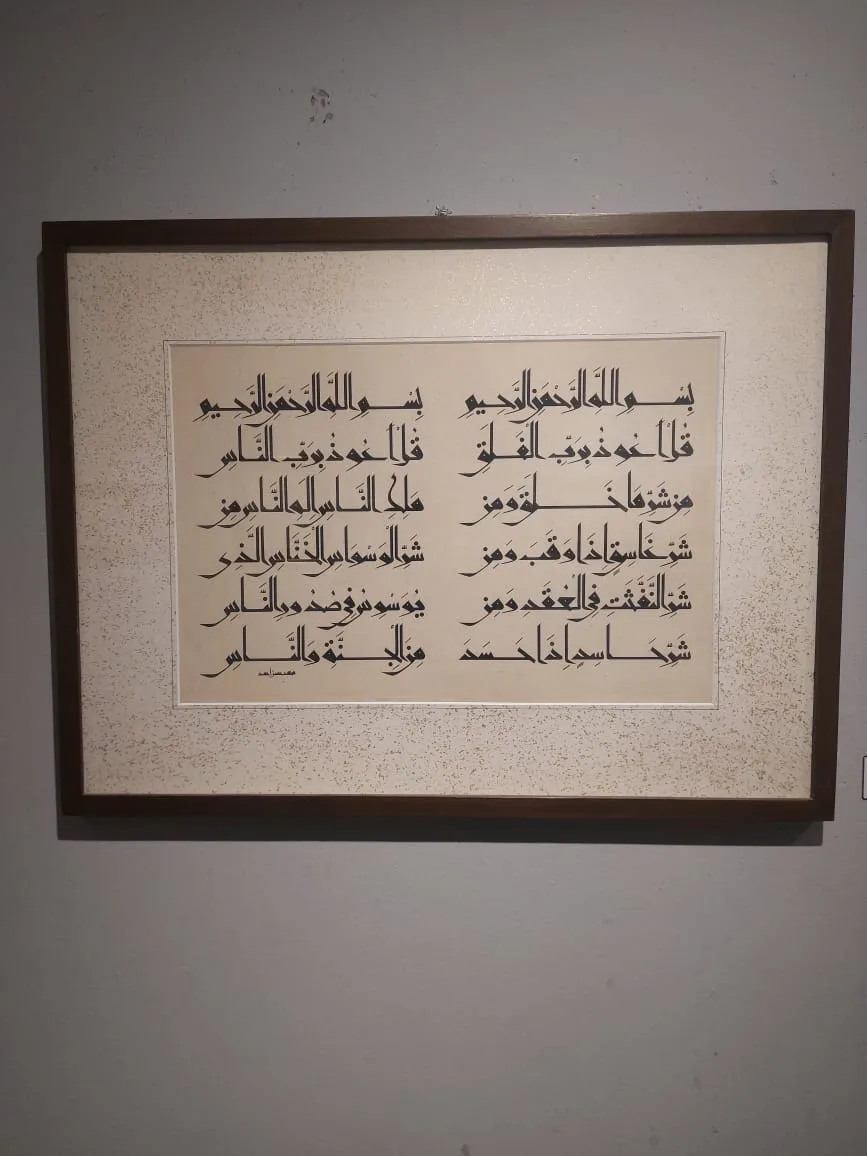 بِسْمِ اللَّهِ الرَّحْمَنِ الرَّحِيمِ
قُلْ أَعُوذُ بِرَبِّ الْفَلَقِ
مِن شَرِّ مَا خَلَقَ وَمِن
شَرِّ غَاسِقٍ إِذَا وَقَبَ وَمِن
شَرِّ النَّفَّثَتِ فِي الْعُقَدِ وَمِن
شَرِّ حَاسِدٍ إِذَا حَسَدَ
بِسْمِ اللَّهِ الرَّحْمَنِ الرَّحِيمِ
قُلْ أَعُوذُ بِرَبِّ النَّاسِ
مَلِكِ النَّاسِ إِلَهِ النَّاسِ مِن
شَرِّ الْوَسْوَاسِ الْخَنَّاسِ الَّذِي
يُوَسْوِسُ فِي صُدُورِ النَّاسِ
مِنَ الْجِنَّةِ وَالنَّاسِ